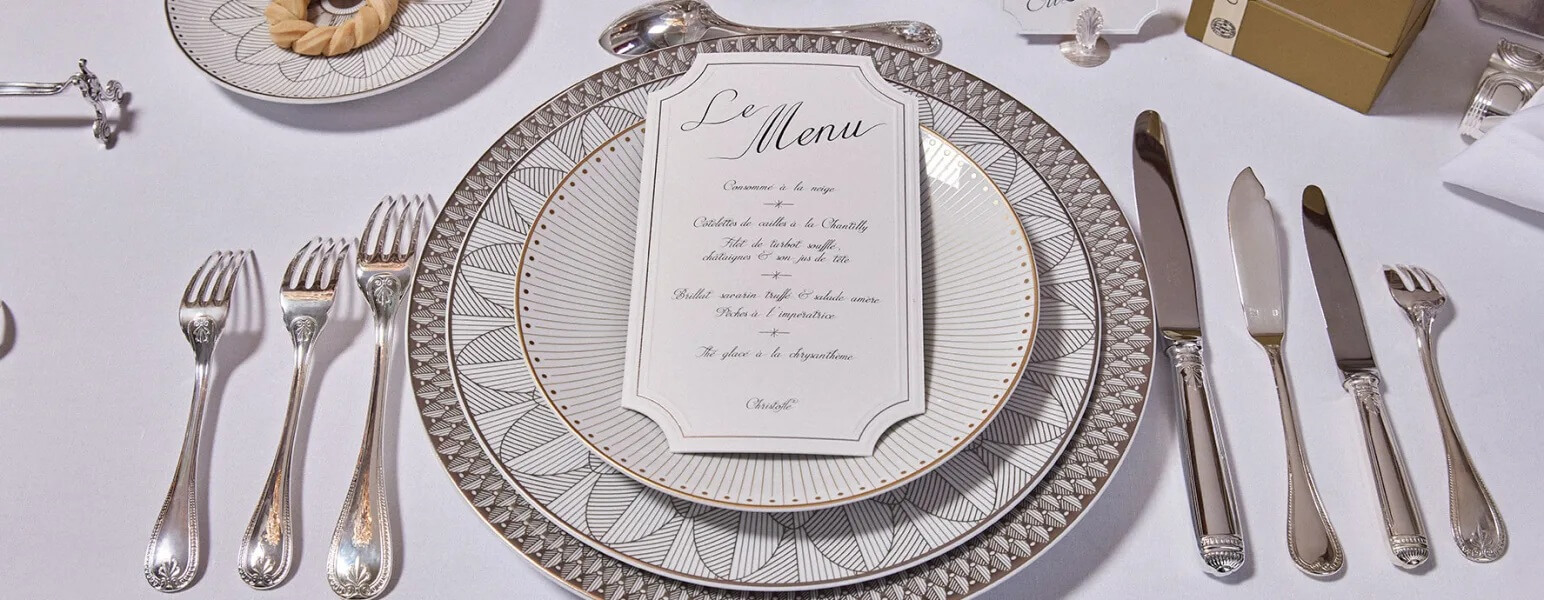 Le Menu
Consommé à la neige
Côtelettes de cailles à la Chantilly
Filet de turbot soufflé,
châtaignes & son jus de tête
Brillat savarin truffé & salade amère
Pêches à l'impératrice
Thé glacé à la chrysanthème
Christofle